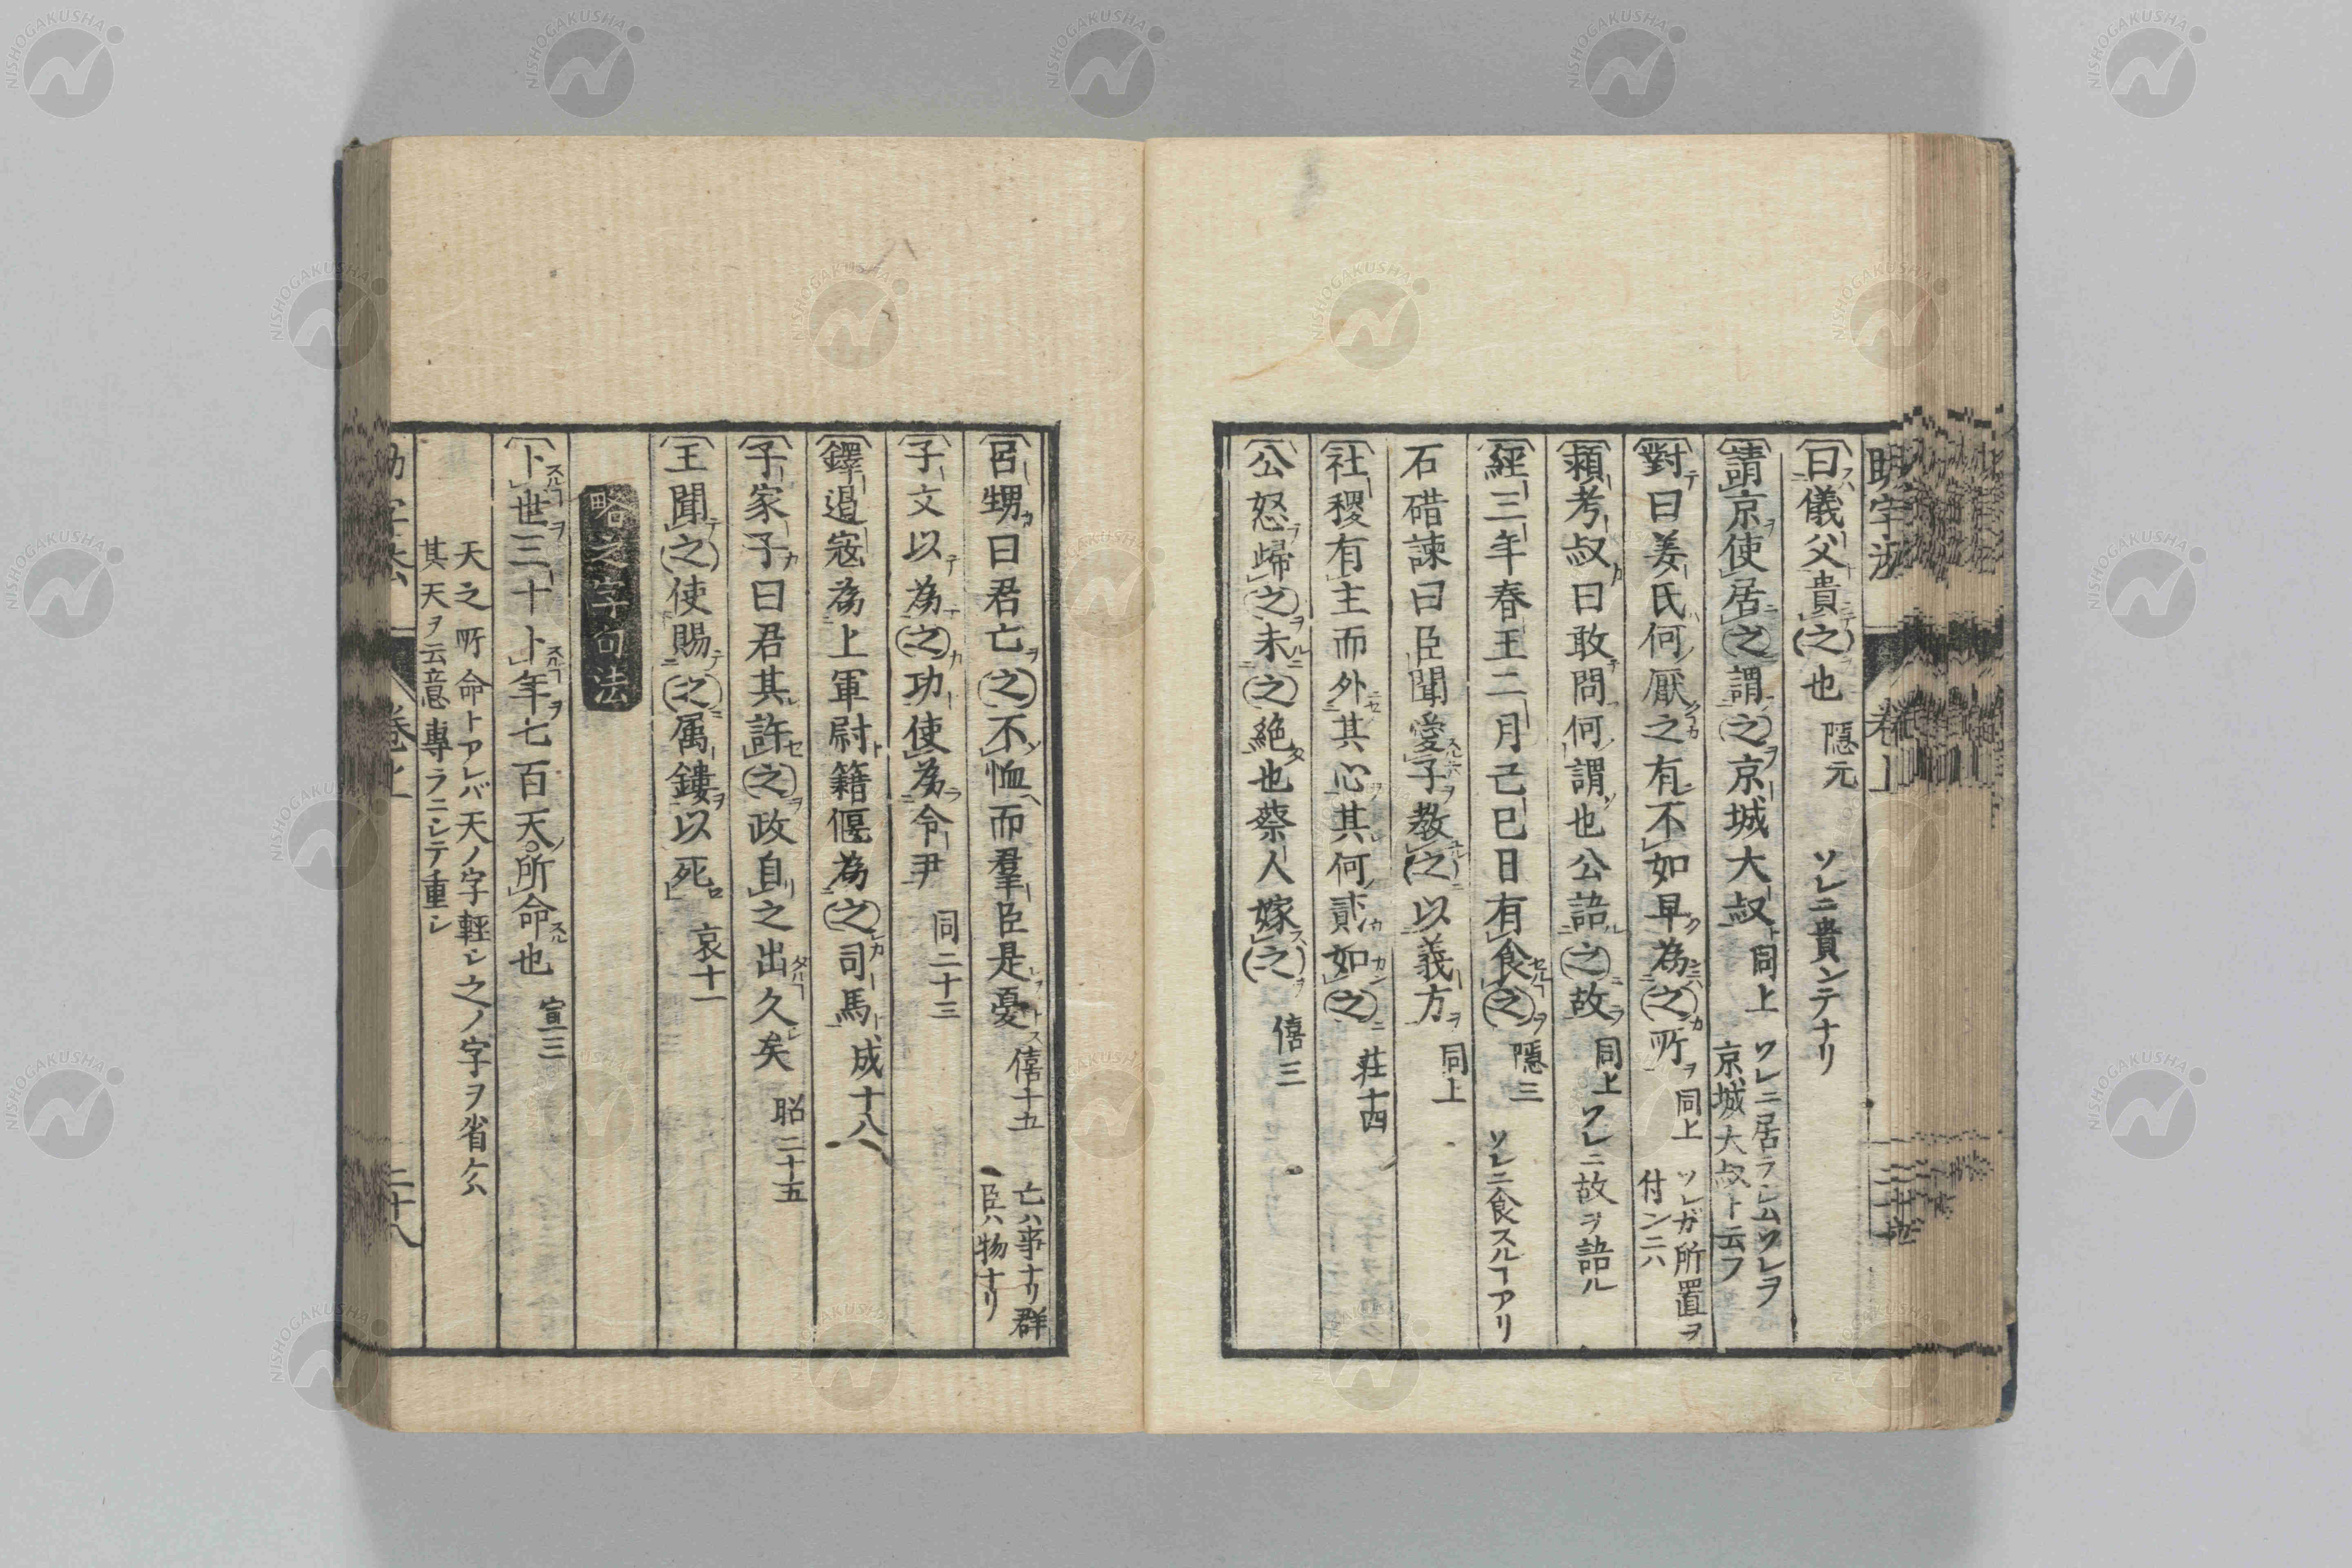 曰儀父貴之也 隱元 ソレニ貴ンテナリ
請京使居之謂之京城大叔 同上 ソレニ居ラシムソレヲ
京城大叔ト云フ
對曰姜氏何厭之有不如早為之所 同上 ソレガ所置ヲ
付ンニハ
潁考叔曰敢問何謂也公語之故 同上 ソレニ故ヲ語ル
經三年春王二月己巳日有食之 隱三 ソレニ食スルヿアリ
石碏諫曰臣聞愛子教之以義方 同上
社稷有主而外其心其何貳如之 莊十四
公怒歸之未之絶也蔡人嫁之 僖三
呂甥曰君亡之不恤而羣臣是憂 僖十五 亡ハ事ナリ群
臣ハ物ナリ
子文以為之功使為令尹 同二十三
鐸遏寇為上軍尉籍偃為之司馬 成十八
子家子曰君其許之政自之出久矣 昭二十五
王聞之使賜之属鏤以死 哀十一
略之字句法
卜世三十卜年七百天所命也 宣三
天之所命トアレバ天ノ字軽シ之ノ字ヲ省ケハ
其天ヲ云意專ラニシテ重シ
助字法 卷上 二十八